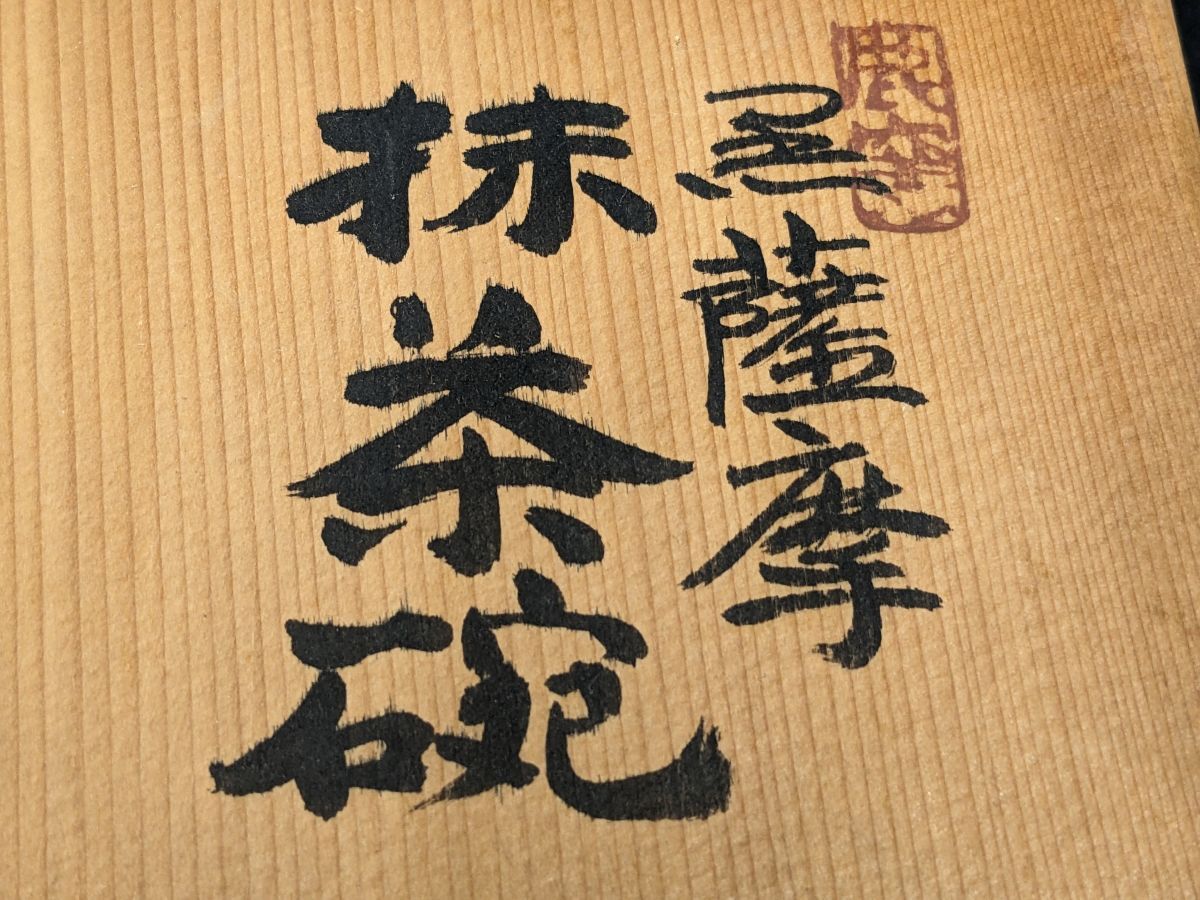 黒薩摩
抹茶碗